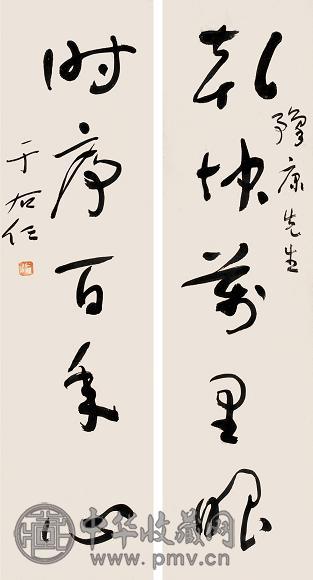 乾坤萬里眼
豫康先生
时序百年心
于右任
中华收藏网
www.pmv.cn